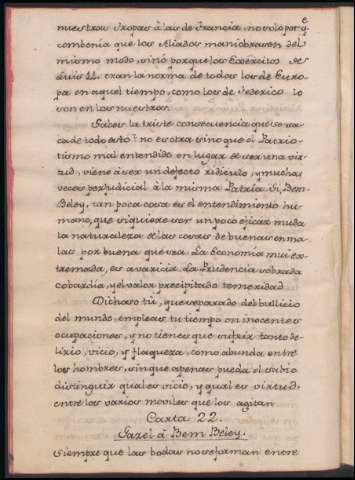 nuestras tropas à las de Francia, no solo por q.e
combenia que los Aliados maniobrasen del
mismo modo, sinó porque los Exércitos de
Luis 14. eran la norma de todos los de Euro-
pa en aquel tiempo, como los de Federico lo
son en los nuestros.
Sabes la triste consecuencia que se sa-
ca de todo esto? no es otra sino que el Patrio-
tismo mal entendido en lugar de ser una vir-
tud, viene à ser un defecto ridiculo, y muchas
veces perjudicial à la misma Patria. Si, Bem-
Beley, tan poca cosa es el entendimiento hu-
mano, que si quiere ser un poco eficaz muda
la naturaleza de las cosas de buenas en ma-
las por buena que sea. La Economia mui ex-
tremada, es avaricia. La Prudencia sobrada
cobardia, y el valor precipitado temeridad.
Dichoso tú, que separado del bullicio
del mundo empleas tu tiempo en inocentes
ocupaciones, y no tienes que sufrir tanto de-
lirio, vicio, y flaqueza, como abunda entre
los hombres, sin que apenas pueda el sabio
distinguir qual es vicio, y qual es virtud,
entre los varios moviles que los agitan.
Carta 22.
Gazel à Bem Beley.
Siempre que las bodas no se forman entre